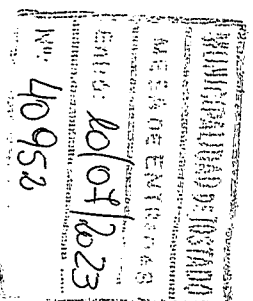 MUNICIPALIDAD DE TOSTADO
MESA DE ENTRADAS
Entró: 20/04/2023
Nº: 40952